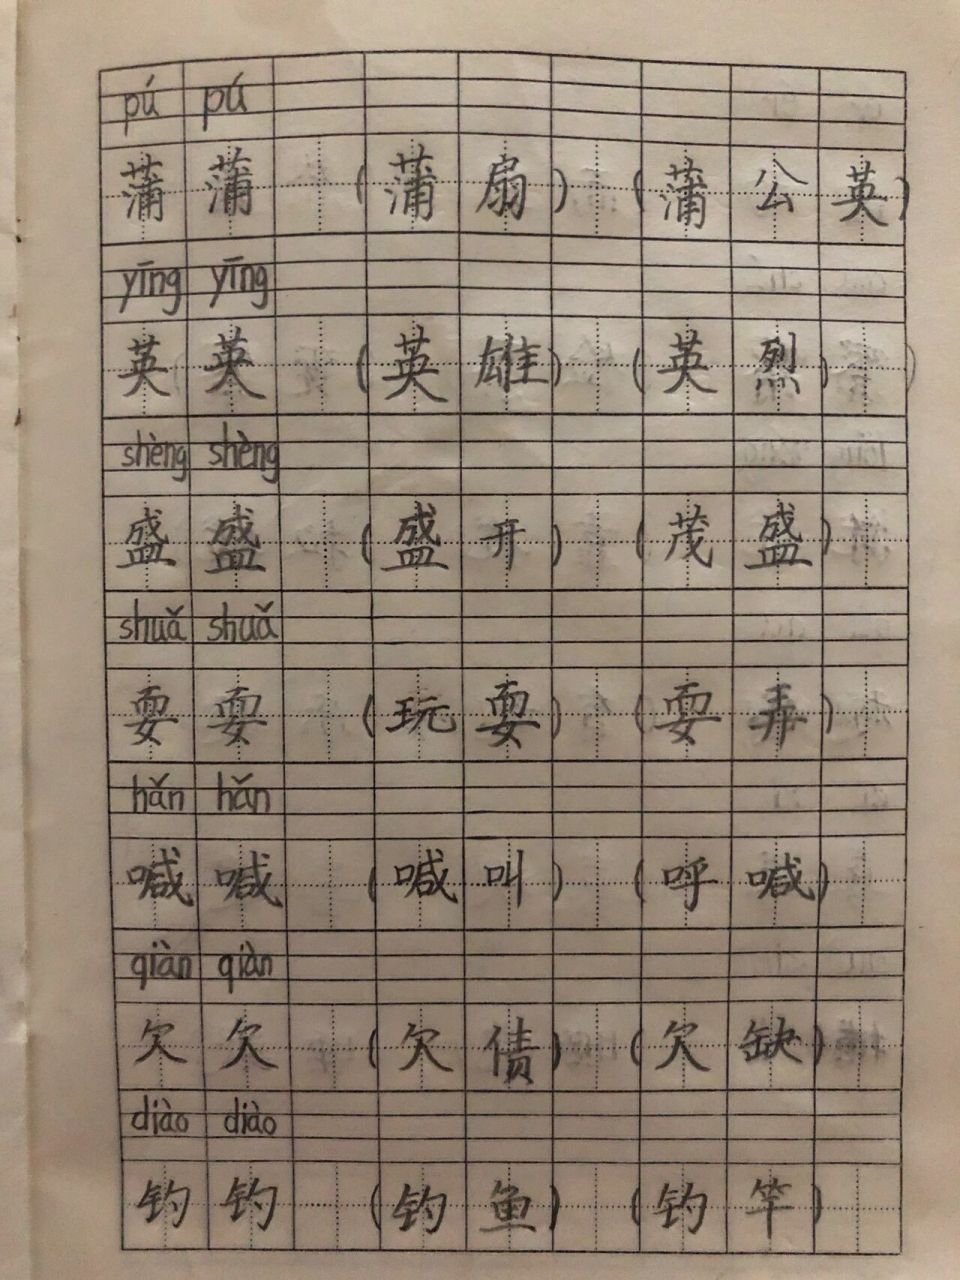 pú pú
蒲 蒲 (蒲 扇) (蒲 公 英)
yīng yīng
英 英 (英 雄) (英 烈)
shèng shèng
盛 盛 (盛 开) (茂 盛)
shuǎ shuǎ
耍 耍 (玩 耍) (耍 弄)
hǎn hǎn
喊 喊 (喊 叫) (呼 喊)
qiàn qiàn
欠 欠 (欠 债) (欠 缺)
diào diào
钓 钓 (钓 鱼) (钓 竿)